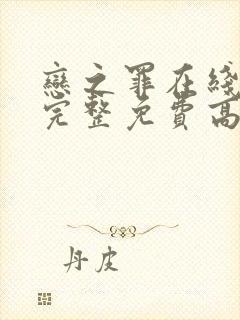 戀之罪在綫
完整免費高
丹皮